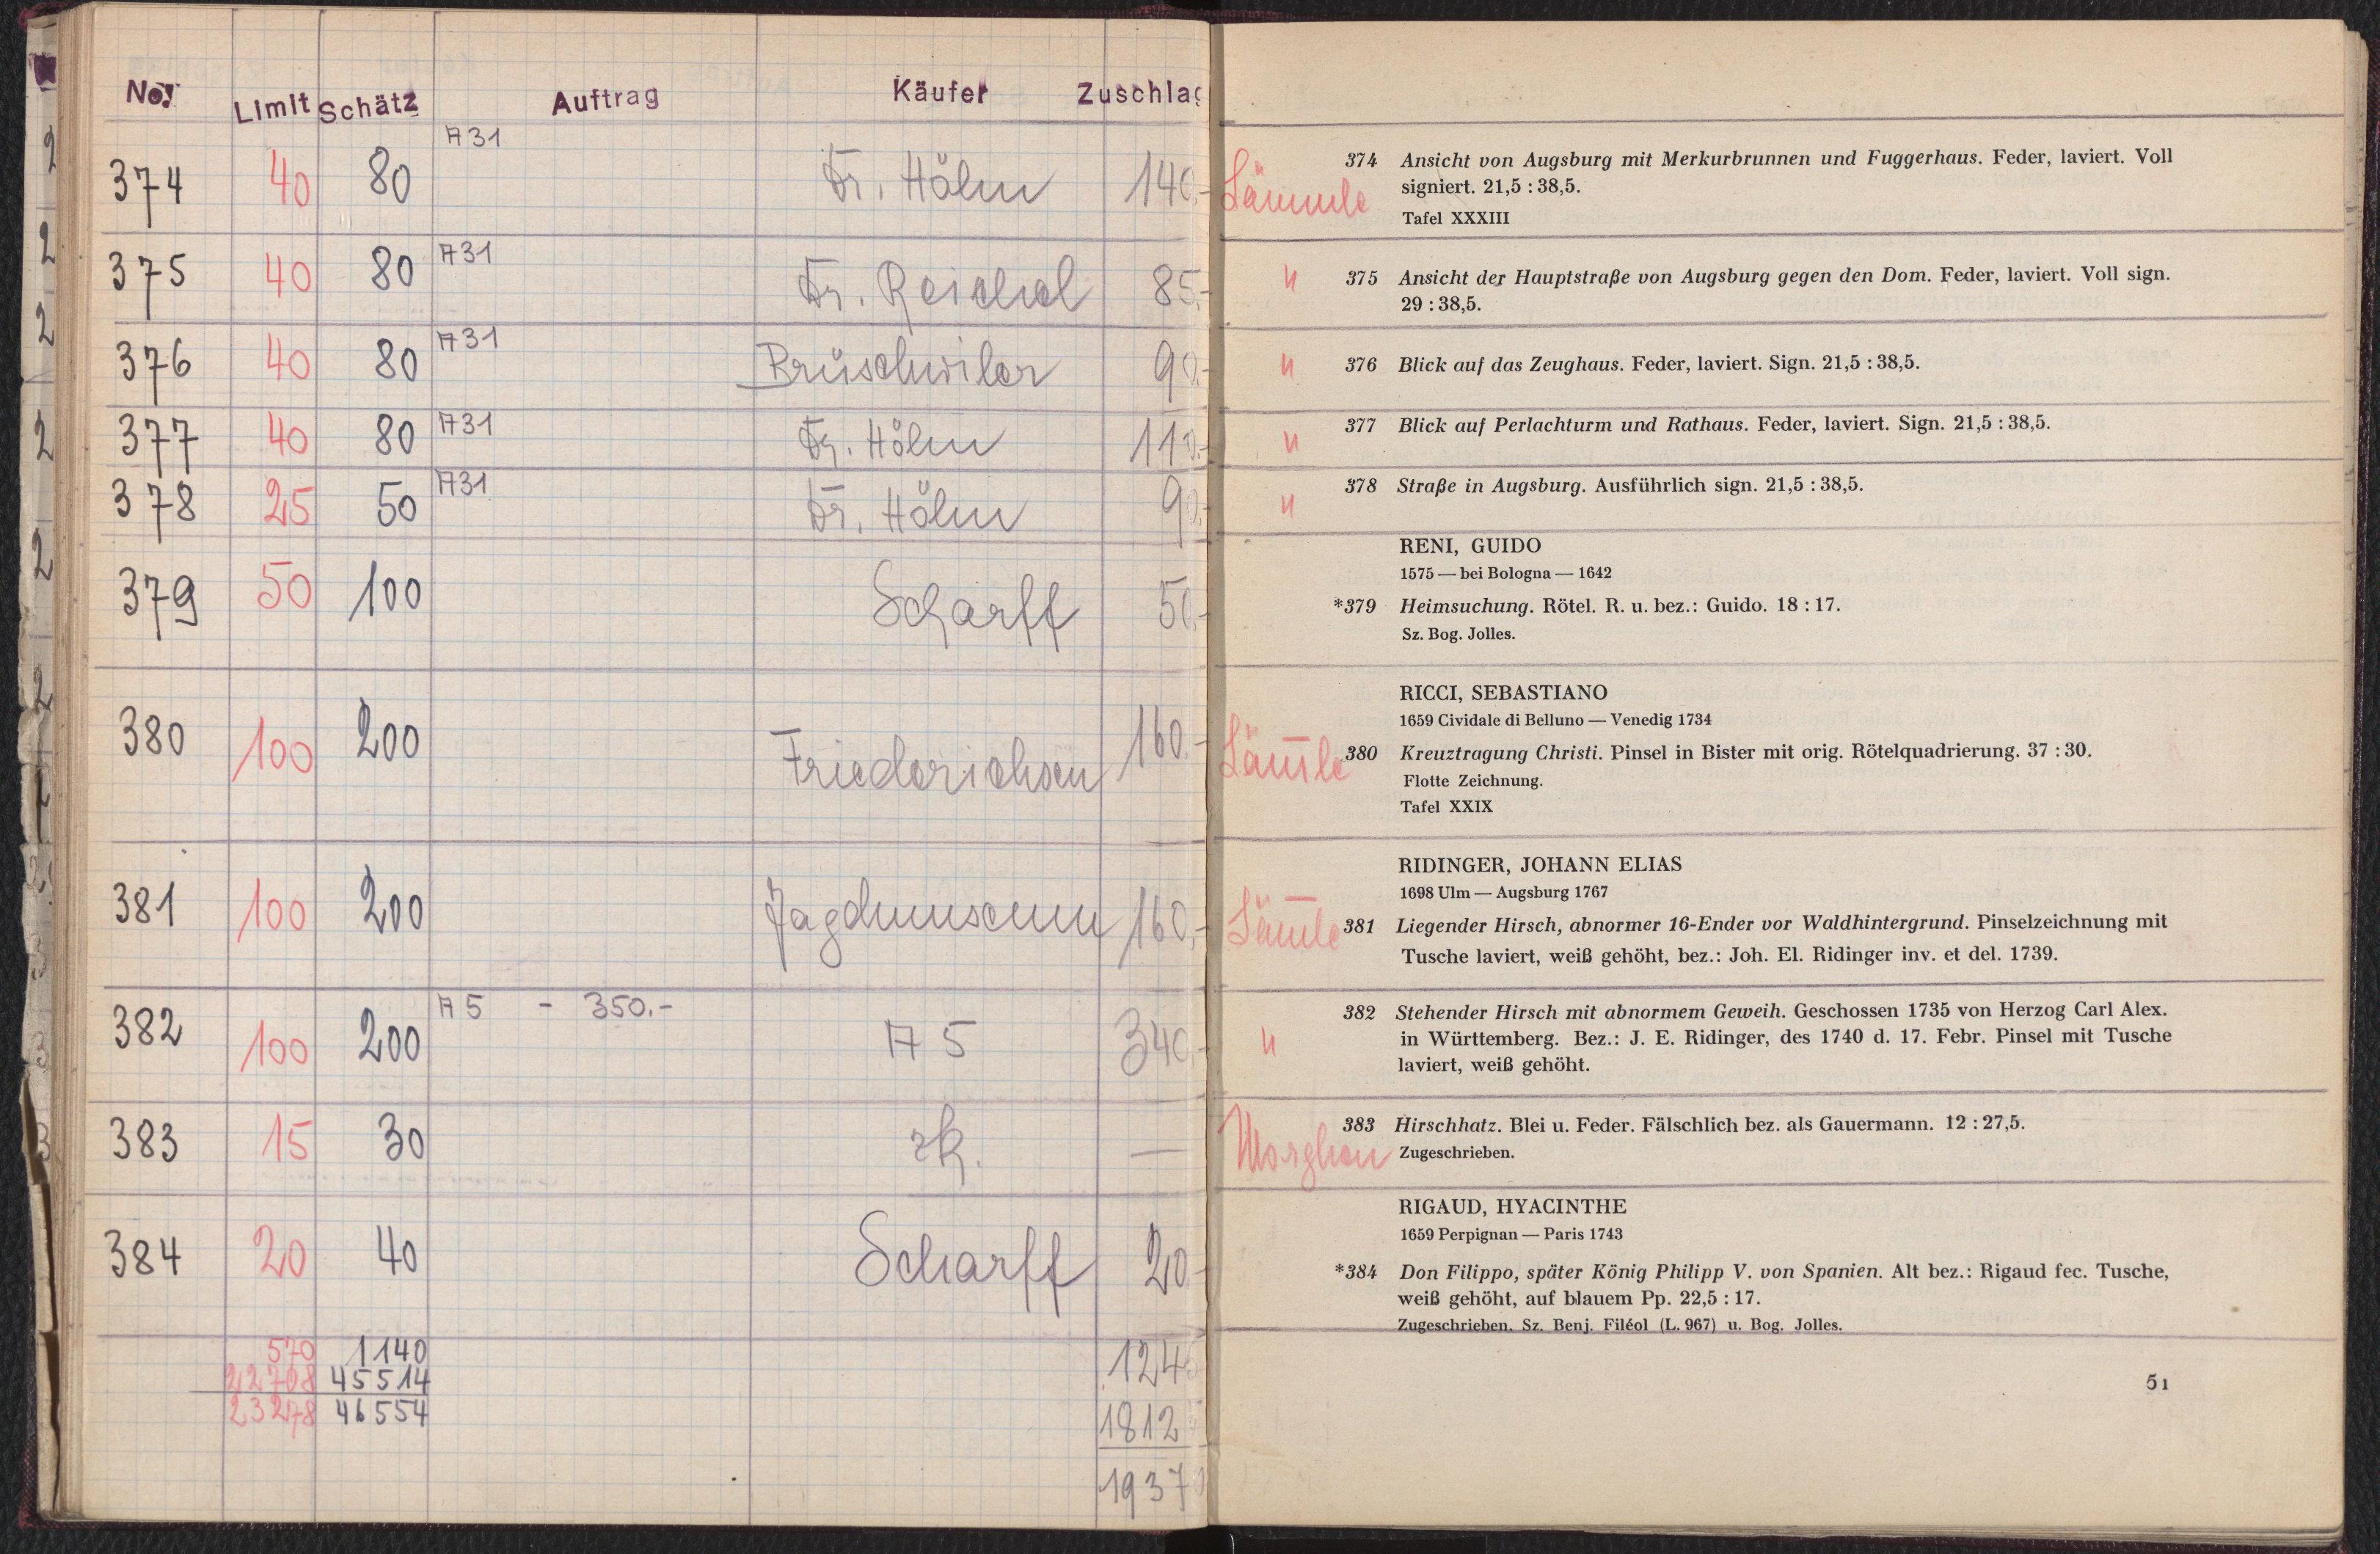 No. Limit Schätz Auftrag Käufer Zuschlag
374 40 80 A31 Dr. Höhn 140.-
375 40 80 A31 Dr. Reichel 85.-
376 40 80 A31 Brüschwiler 90.-
377 40 80 A31 Dr. Höhn 110.-
378 25 50 A31 Dr. Höhn 90.-
379 50 100 Scharff 50.-
380 100 200 Friederichsen 160.-
381 100 200 Jagdmuseum 160.-
382 100 200 A5 - 350.- A5 340.-
383 15 30 rk. —
384 20 40 Scharff 20.-
570 1140 124
22708 45514 1812
23278 46554 1937
Lämmle 374 Ansicht von Augsburg mit Merkurbrunnen und Fuggerhaus. Feder, laviert. Voll
signiert. 21,5 : 38,5.
Tafel XXXIII
" 375 Ansicht der Hauptstraße von Augsburg gegen den Dom. Feder, laviert. Voll sign.
29 : 38,5.
" 376 Blick auf das Zeughaus. Feder, laviert. Sign. 21,5 : 38,5.
" 377 Blick auf Perlachturm und Rathaus. Feder, laviert. Sign. 21,5 : 38,5.
" 378 Straße in Augsburg. Ausführlich sign. 21,5 : 38,5.
RENI, GUIDO
1575 — bei Bologna — 1642
*379 Heimsuchung. Rötel. R. u. bez.: Guido. 18 : 17.
Sz. Bog. Jolles.
RICCI, SEBASTIANO
1659 Cividale di Belluno — Venedig 1734
Läm̄le 380 Kreuztragung Christi. Pinsel in Bister mit orig. Rötelquadrierung. 37 : 30.
Flotte Zeichnung.
Tafel XXIX
RIDINGER, JOHANN ELIAS
1698 Ulm — Augsburg 1767
Läm̄le 381 Liegender Hirsch, abnormer 16-Ender vor Waldhintergrund. Pinselzeichnung mit
Tusche laviert, weiß gehöht, bez.: Joh. El. Ridinger inv. et del. 1739.
" 382 Stehender Hirsch mit abnormem Geweih. Geschossen 1735 von Herzog Carl Alex.
in Württemberg. Bez.: J. E. Ridinger, des 1740 d. 17. Febr. Pinsel mit Tusche
laviert, weiß gehöht.
383 Hirschhatz. Blei u. Feder. Fälschlich bez. als Gauermann. 12 : 27,5.
Morghen Zugeschrieben.
RIGAUD, HYACINTHE
1659 Perpignan — Paris 1743
*384 Don Filippo, später König Philipp V. von Spanien. Alt bez.: Rigaud fec. Tusche,
weiß gehöht, auf blauem Pp. 22,5 : 17.
Zugeschrieben. Sz. Benj. Filéol (L. 967) u. Bog. Jolles.
51